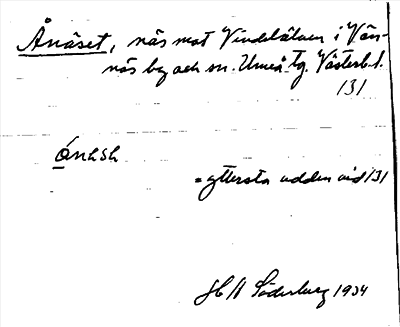 Ånäset, näs mot Vindelälven i Vän-
näs by och sn. Umeå tg. Västerb. l.
131
ónhsh
= yttersta udden vid 131
H Söderberg 1934